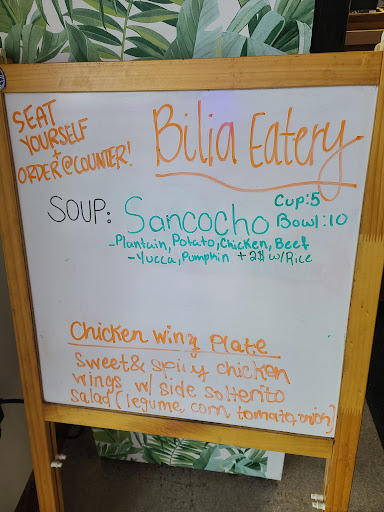 SEAT
YOURSELF
+
ORDER@COUNTER!
Bilia Eatery
SOUP: Sancocho Cup:5
Bowl:10
-Plantain, Potato, Chicken, Beef
-Yucca, Pumpkin +2$ w/Rice
Chicken Wing Plate
Sweet & spicy chicken
wings w/ side solterito
salad (legume, corn, tomato, onion)